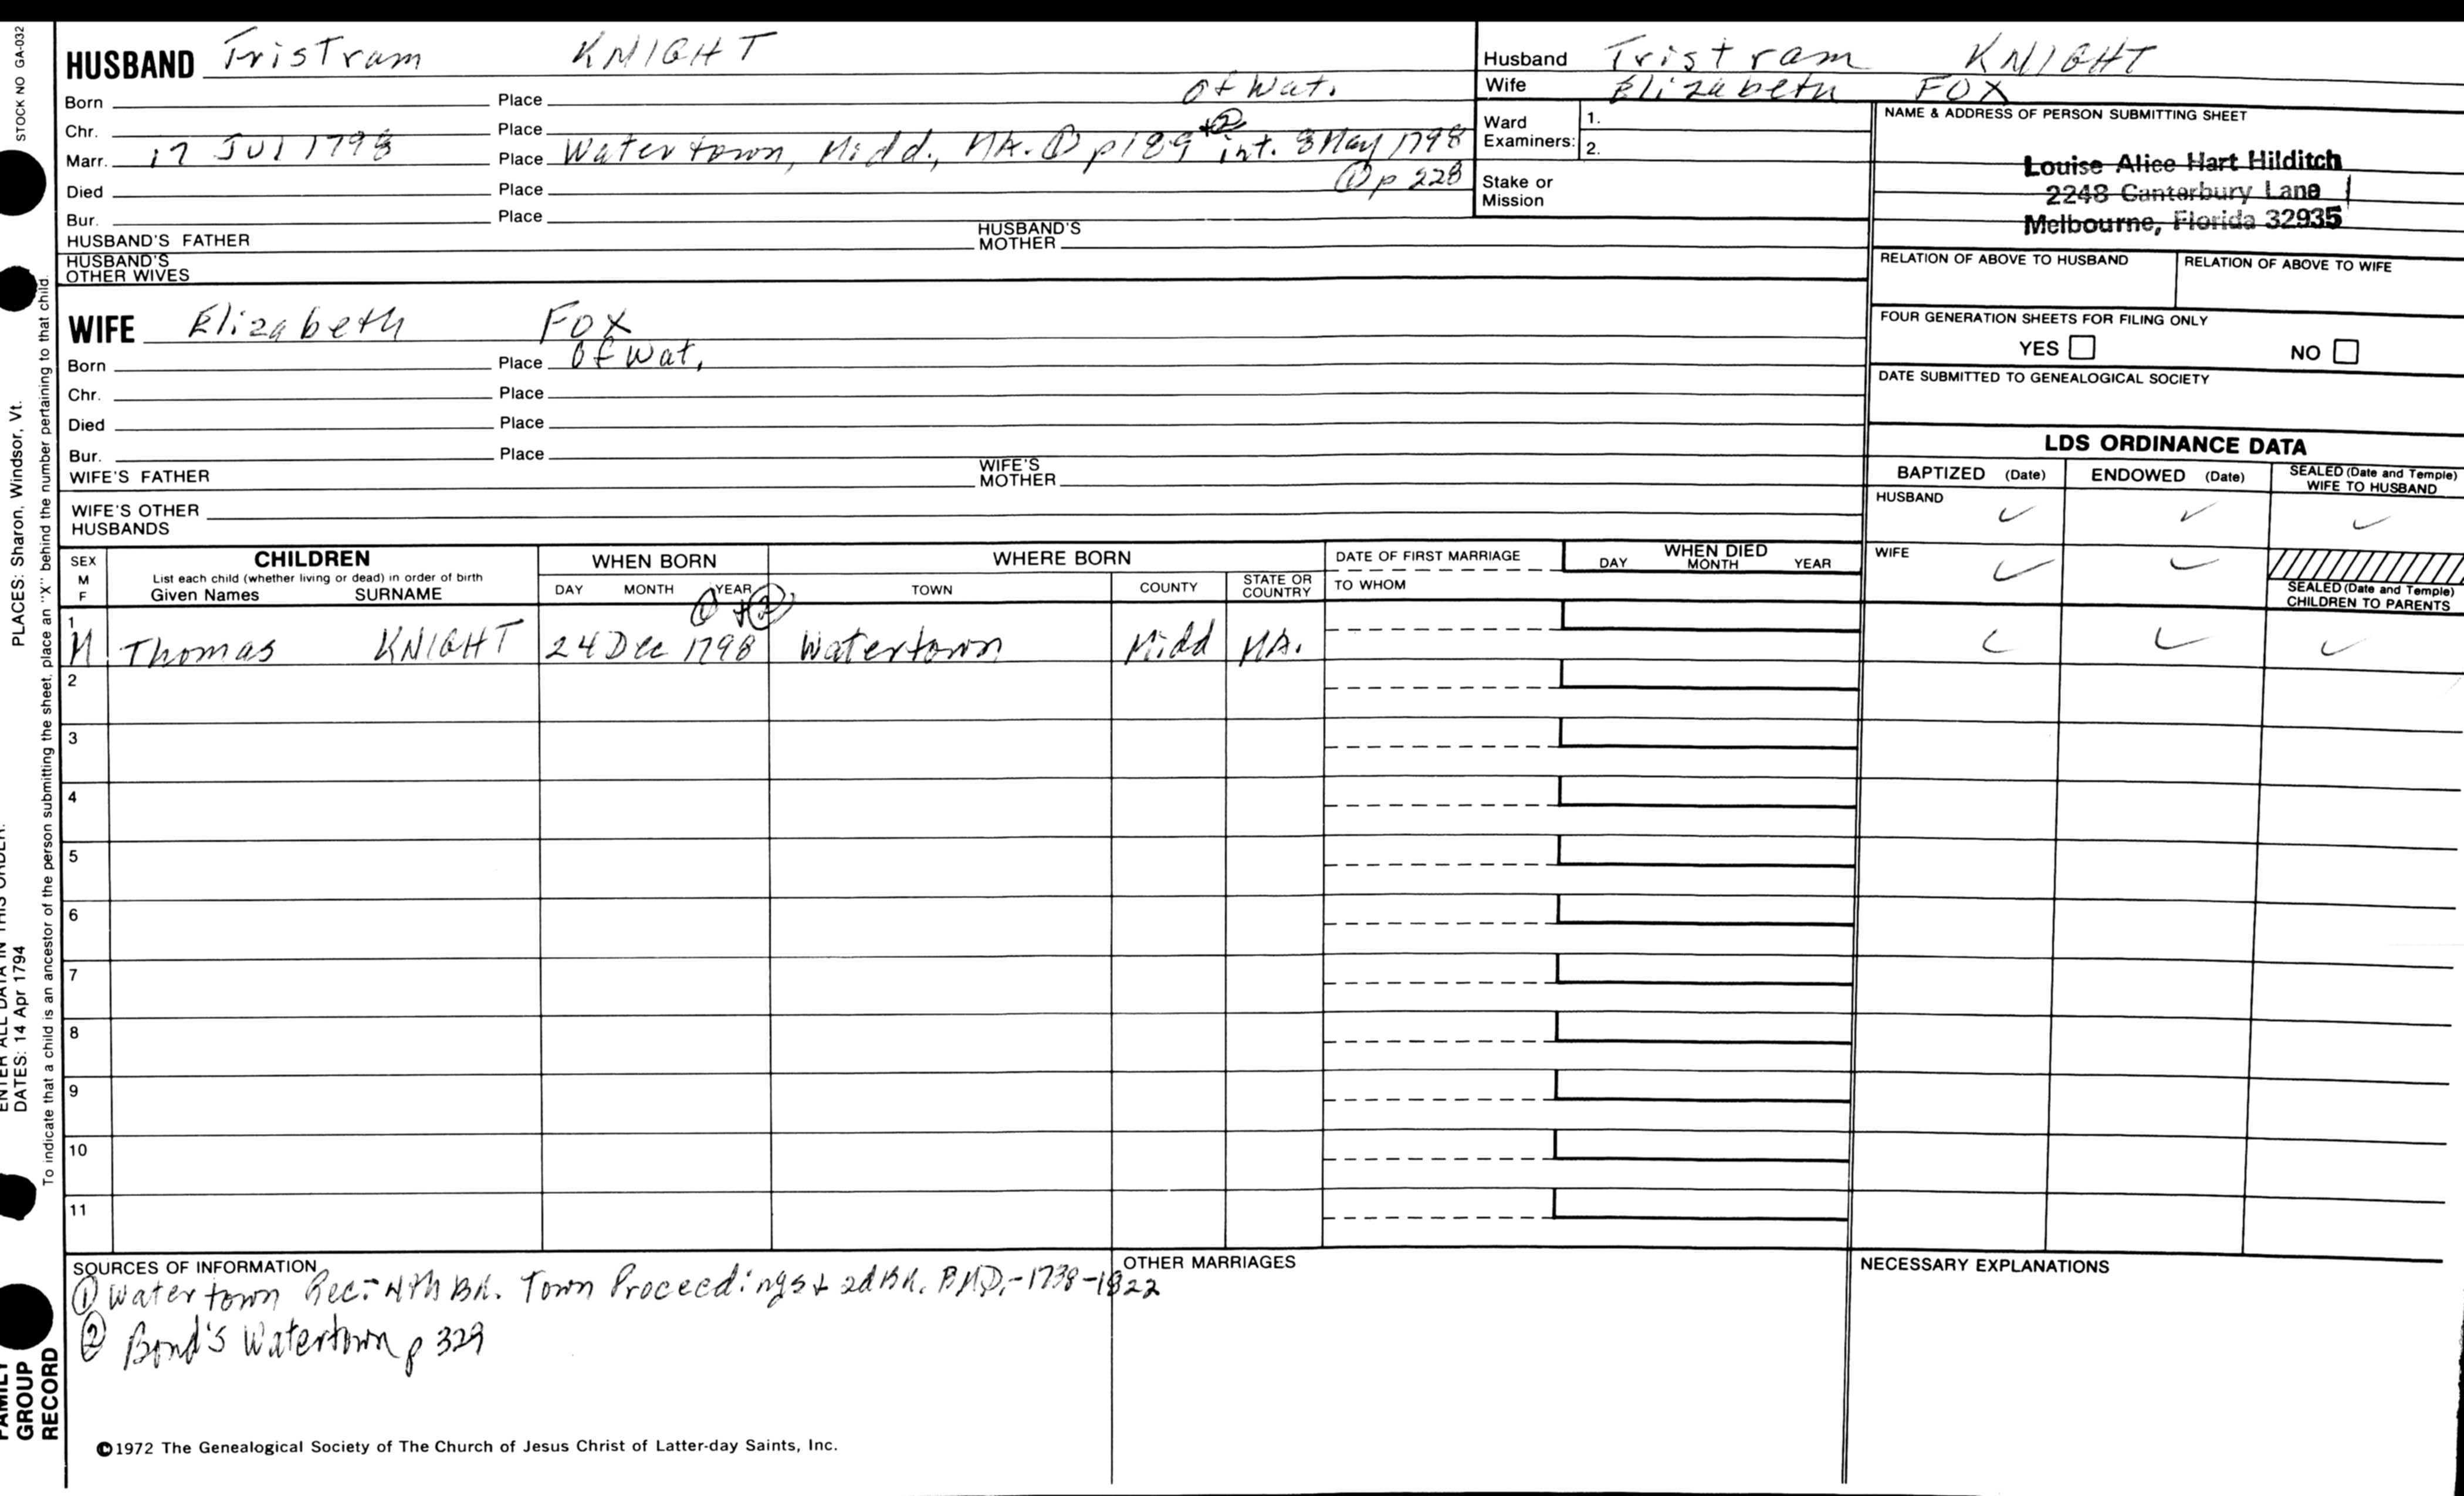 STOCK NO GA-032
HUSBAND Tristram KNIGHT
Born Place Of Wat.
Chr. Place
Marr. 17 Jul 1798 Place Watertown, Midd., MA. ① p 189 +② int. 8 May 1798
① p 228
Died Place
Bur. Place
HUSBAND'S FATHER HUSBAND'S MOTHER
HUSBAND'S OTHER WIVES
Husband Tristram KNIGHT
Wife Elizabeth FOX
Ward Examiners: 1.
2.
Stake or Mission
NAME & ADDRESS OF PERSON SUBMITTING SHEET
Louise Alice Hart Hilditch
2248 Canterbury Lane
Melbourne, Florida 32935
RELATION OF ABOVE TO HUSBAND RELATION OF ABOVE TO WIFE
FOUR GENERATION SHEETS FOR FILING ONLY
YES NO
DATE SUBMITTED TO GENEALOGICAL SOCIETY
WIFE Elizabeth FOX
Born Place Of Wat.
Chr. Place
Died Place
Bur. Place
WIFE'S FATHER WIFE'S MOTHER
WIFE'S OTHER HUSBANDS
LDS ORDINANCE DATA
BAPTIZED (Date) ENDOWED (Date) SEALED (Date and Temple) WIFE TO HUSBAND
HUSBAND ✓ ✓ ✓
WIFE ✓ ✓
SEALED (Date and Temple) CHILDREN TO PARENTS
SEX M F
CHILDREN
List each child (whether living or dead) in order of birth
Given Names SURNAME
WHEN BORN
DAY MONTH YEAR
① +②
WHERE BORN
TOWN COUNTY STATE OR COUNTRY
DATE OF FIRST MARRIAGE
TO WHOM
WHEN DIED
DAY MONTH YEAR
1 M Thomas KNIGHT 24 Dec 1798 Watertown Midd MA. ✓ ✓ ✓
2
3
4
5
6
7
8
9
10
11
SOURCES OF INFORMATION
① Watertown Rec:- 4th Bk. Town Proceedings + 2d Bk. BMD.-1738-1822
② Bond's Watertown p 329
OTHER MARRIAGES
NECESSARY EXPLANATIONS
©1972 The Genealogical Society of The Church of Jesus Christ of Latter-day Saints, Inc.
ENTER ALL DATA IN THIS ORDER:
DATES: 14 Apr 1794
PLACES: Sharon, Windsor, Vt.
To indicate that a child is an ancestor of the person submitting the sheet, place an "X" behind the number pertaining to that child.
FAMILY
GROUP
RECORD